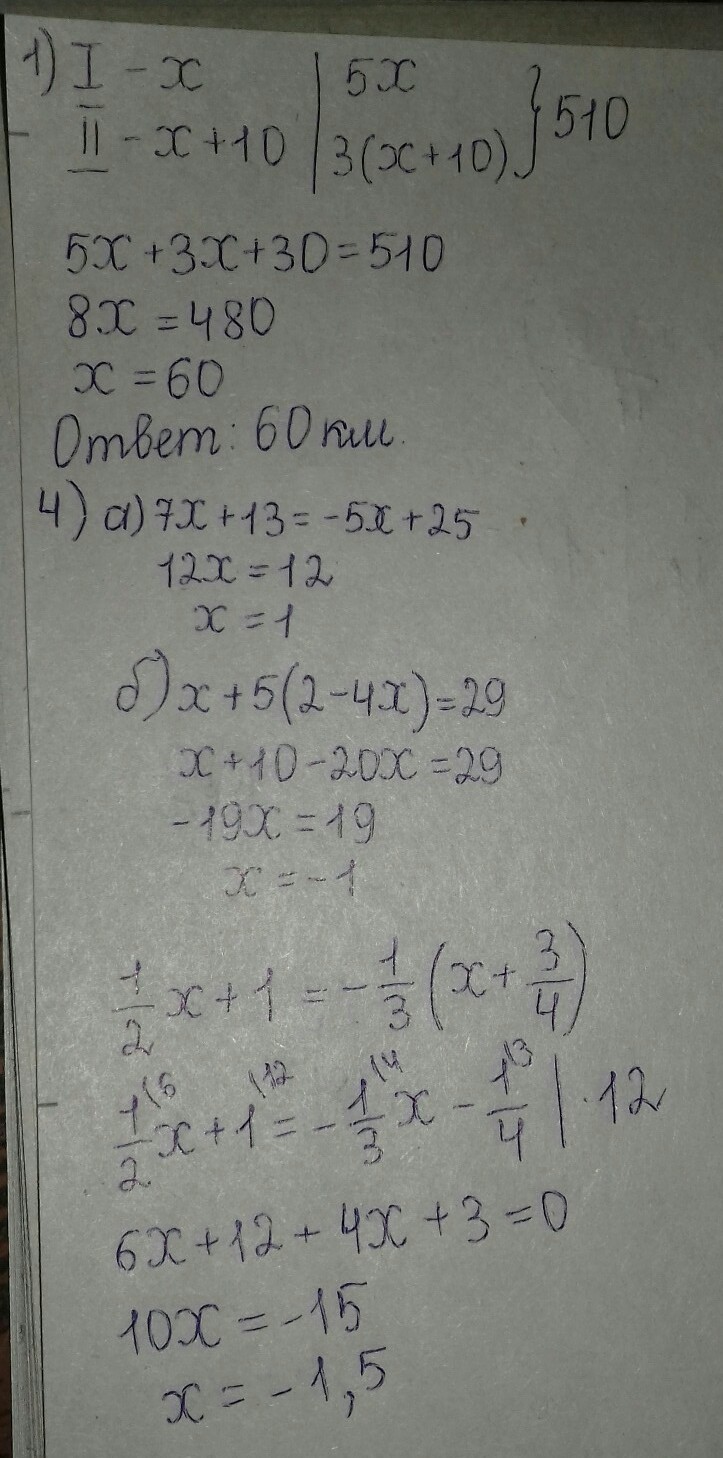 1) I - x | 5x } 510
II - x+10 | 3(x+10)
5x+3x+30=510
8x=480
x=60
Ответ: 60 км.
4) а) 7x+13=-5x+25
12x=12
x=1
б) x+5(2-4x)=29
x+10-20x=29
-19x=19
x=-1
1/2 x+1=-1/3(x+3/4)
1\6/2 x+1\12=-1\4/3 x-1\3/4 | ·12
6x+12+4x+3=0
10x=-15
x=-1,5